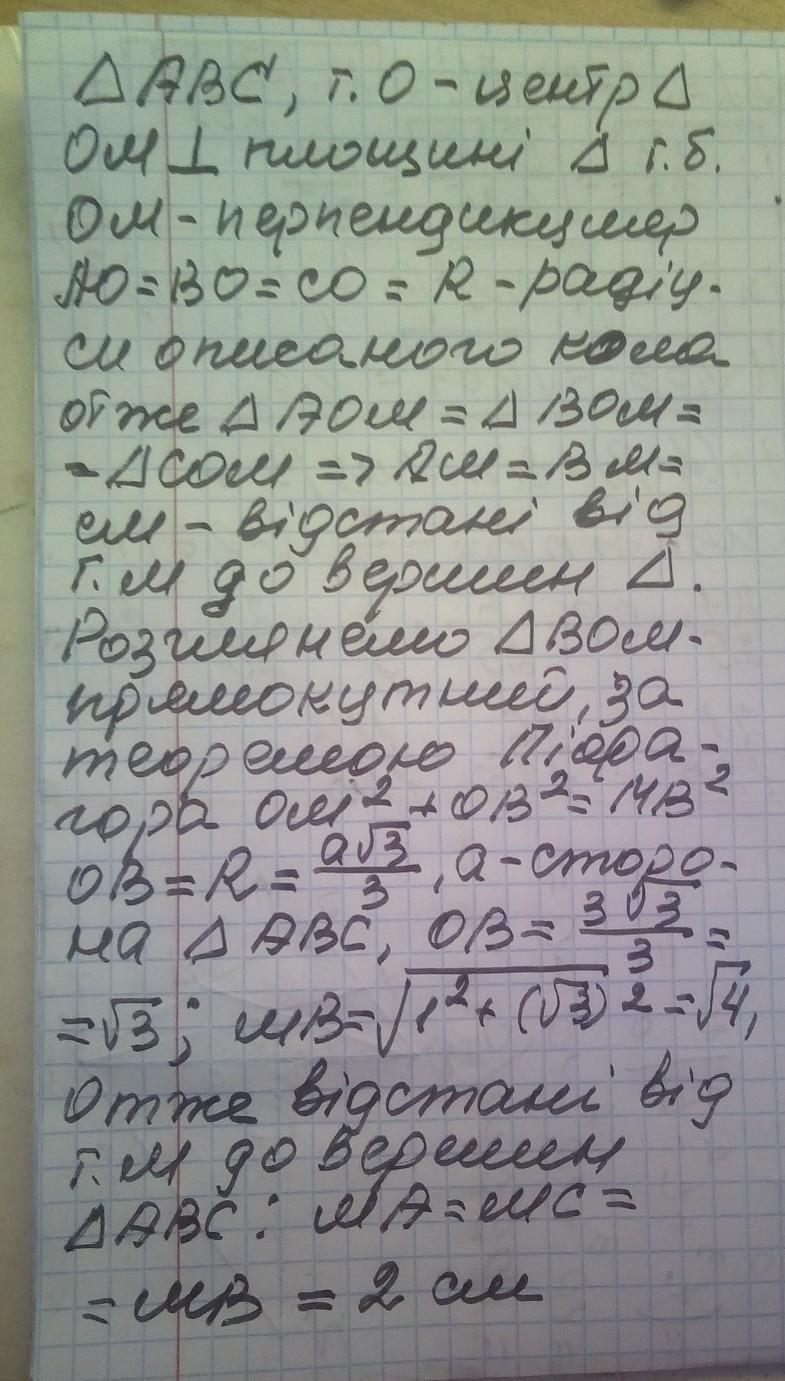 △ABC, т. О - центр △
ОМ ⊥ площині △ т.б.
ОМ - перпендикуляр
АО = ВО = СО = R - радіу-
си описаного кола
отже △АОМ = △ВОМ =
= △СОМ => АМ = ВМ =
СМ - відстані від
т. М до вершин △.
Розглянемо △ВОМ -
прямокутний, за
теоремою Піфа-
гора ОМ² + ОВ² = МВ²
ОВ = R = a√3/3, а - сторо-
на △ABC, ОВ = 3√3/3 =
= √3; МВ = √(1² + (√3)²) = √4,
Отже відстані від
т. М до вершин
△ABC: МА = МС =
= МВ = 2 см